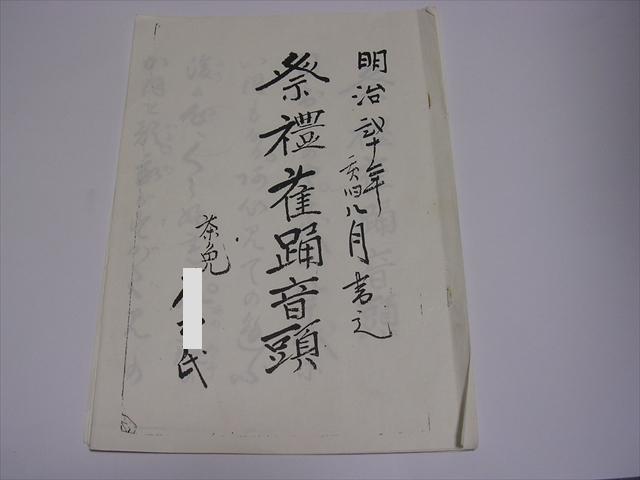 明治弐十年亥旧八月書之
祭禮雀踊音頭
茶免
氏